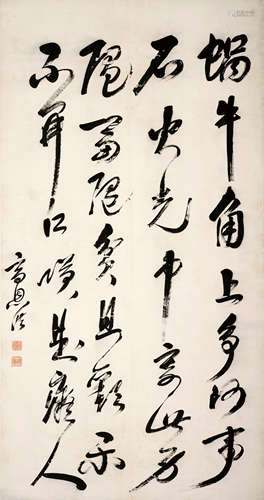 蝸牛角上爭何事
石火光中寄此身
隨富隨貧且歡樂
不開口咲是癡人
高恩洪